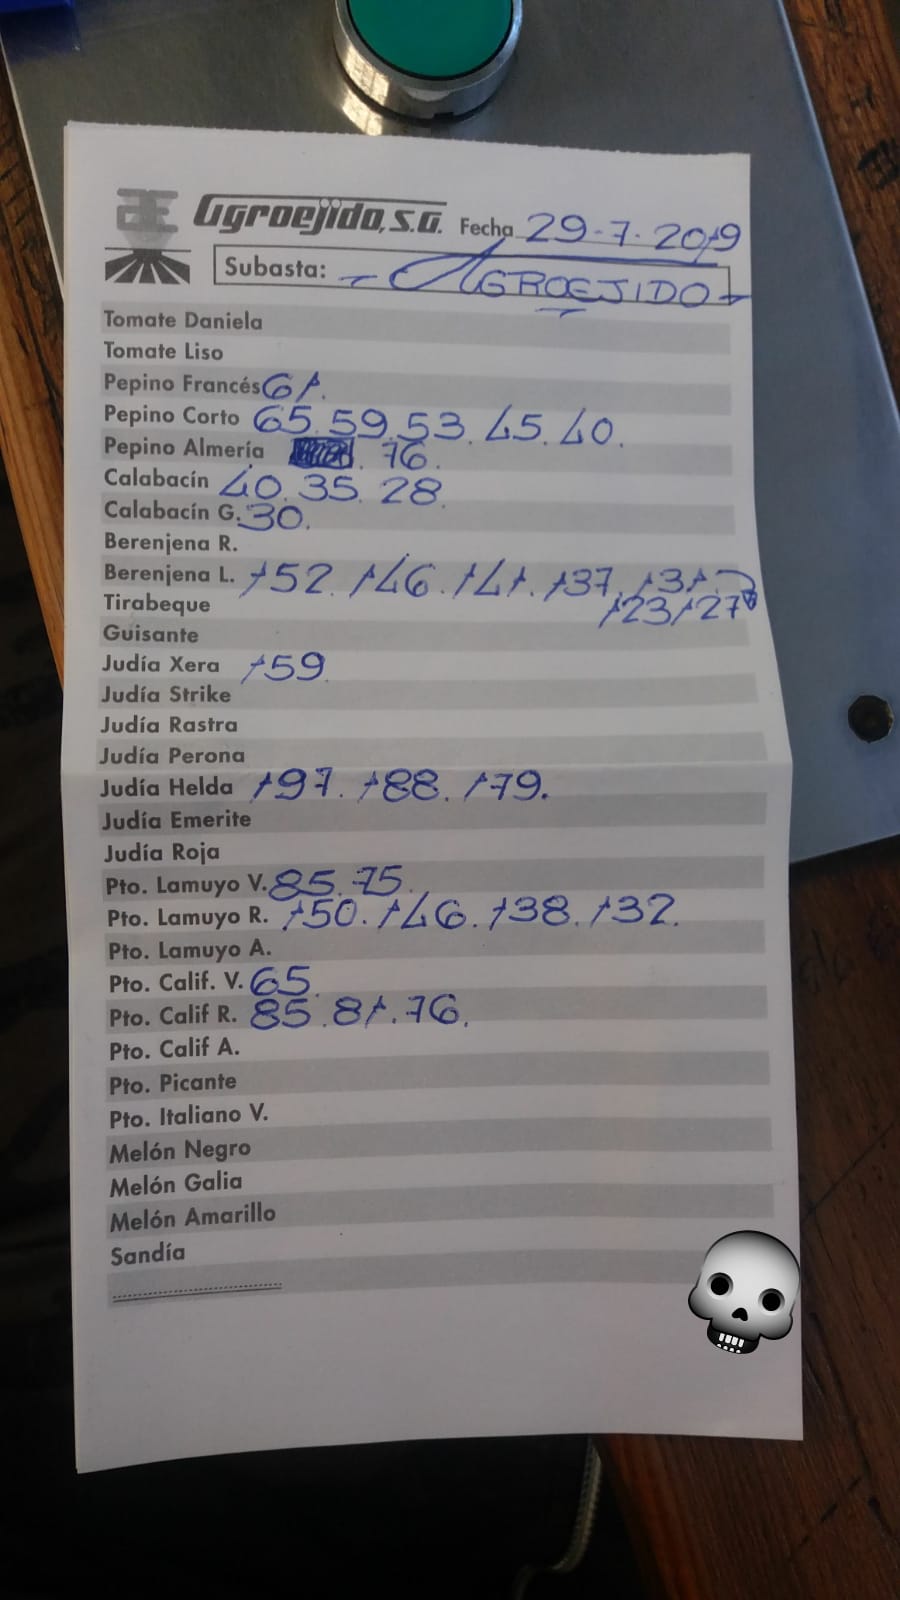 Agroejido, S.A. Fecha 29-7-2019
Subasta: AGROEJIDO
Tomate Daniela
Tomate Liso
Pepino Francés 61.
Pepino Corto 65. 59. 53. 45. 40.
Pepino Almería . 76.
Calabacín 40. 35. 28.
Calabacín G. 30.
Berenjena R.
Berenjena L. 152. 146. 141. 137. 131.
Tirabeque 123/127
Guisante
Judía Xera 159.
Judía Strike
Judía Rastra
Judía Perona
Judía Helda 197. 188. 179.
Judía Emerite
Judía Roja
Pto. Lamuyo V. 85. 75.
Pto. Lamuyo R. 150. 146. 138. 132.
Pto. Lamuyo A.
Pto. Calif. V. 65.
Pto. Calif R. 85. 81. 76.
Pto. Calif A.
Pto. Picante
Pto. Italiano V.
Melón Negro
Melón Galia
Melón Amarillo
Sandía